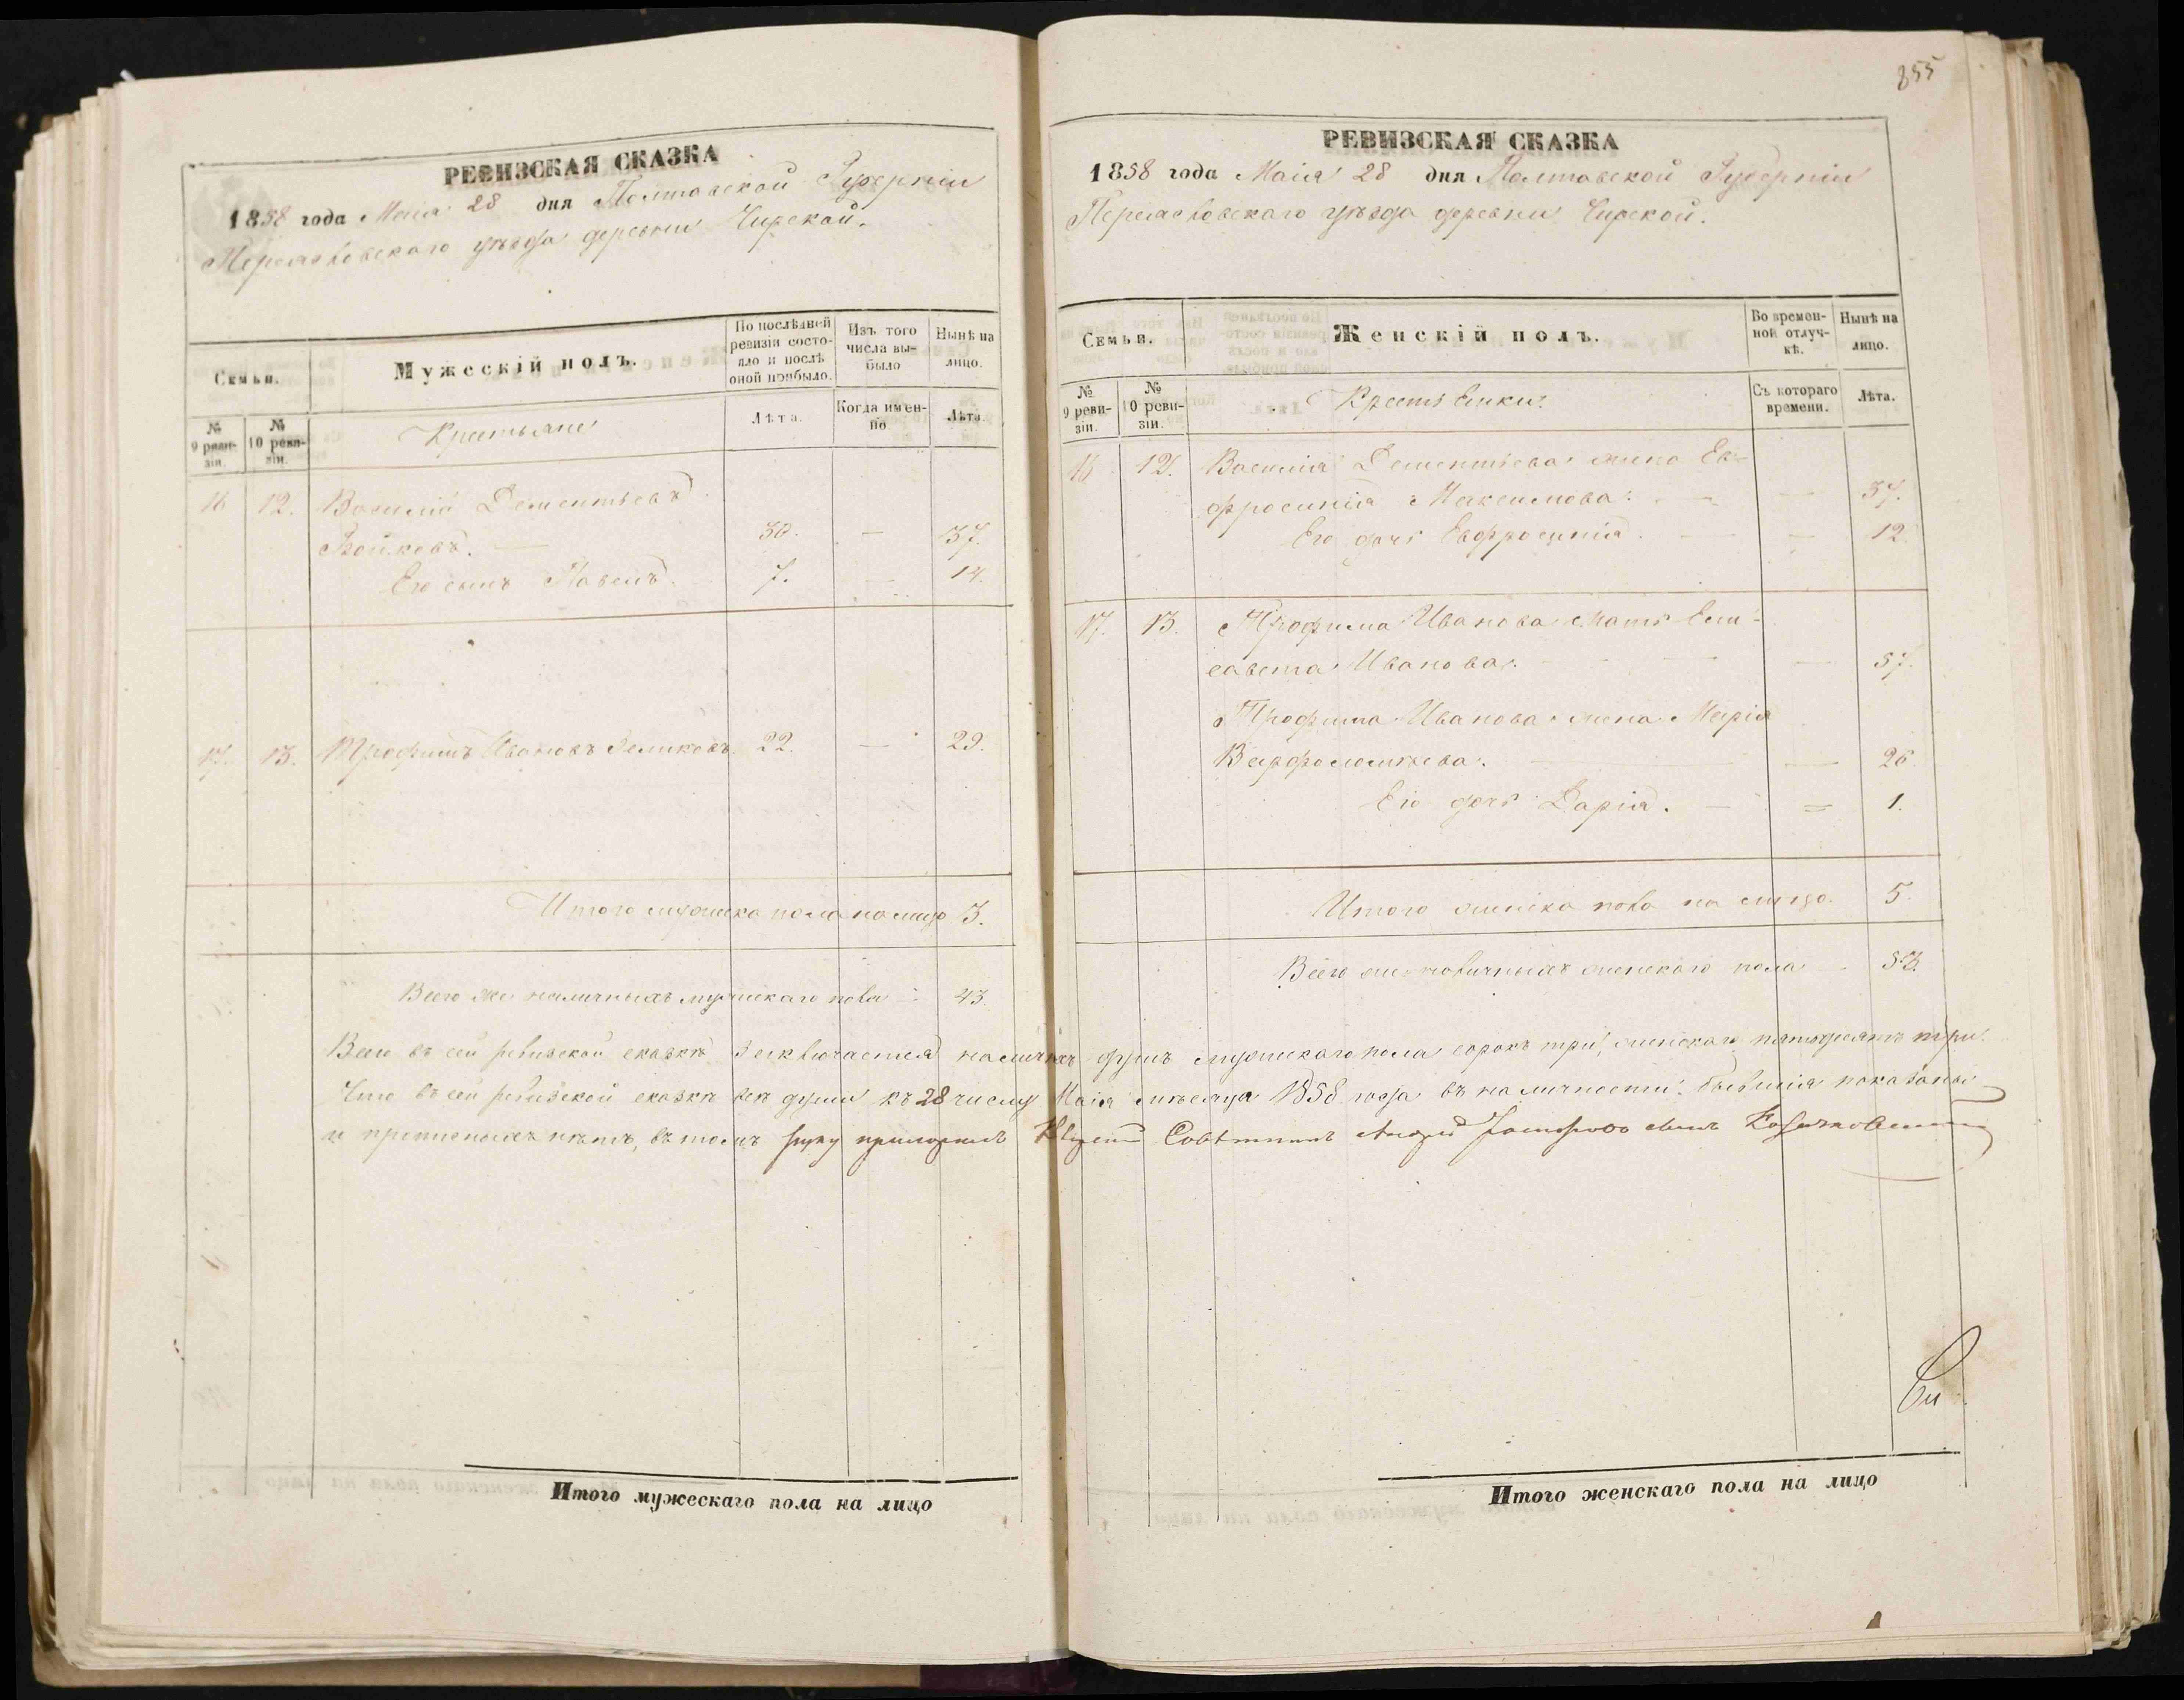 РЕВИЗСКАЯ СКАЗКА
1858 года Маія 28 дня Полтавской Губерніи
Переяславскаго уѣзда деревни Чирской.
Семьи.
Мужескій полъ.
По послѣдней ревизіи состояло и послѣ оной прибыло.
Изъ того числа выбыло
Нынѣ на лицо.
№ 9 ревизіи.
№ 10 ревизіи.
Крестьяне
Лѣта.
Когда именно
Лѣта.
16 12. Василій Дементьевъ
Бойковъ. — 30. — 37.
Его сынъ Павелъ. 7. — 14.
17. 13. Трофимъ Ивановъ 22. — 29.
Итого мужеска пола на лицо 3.
Всего же наличныхъ мужескаго пола 43.
855
РЕВИЗСКАЯ СКАЗКА
1858 года Маія 28 дня Полтавской Губерніи
Переяславскаго уѣзда деревни Чирской.
Семьи.
Женскій полъ.
Во временной отлучкѣ.
Нынѣ на лицо.
№ 9 ревизіи.
№ 10 ревизіи.
Крестьянки.
Съ котораго времени.
Лѣта.
16 12. Василія Дементьева жена Ев-
фросинія Максимова. — — 37.
Его дочь Евфросинія. — — 12.
17. 13. Трофима Иванова мать Ели-
савета Иванова. — — — 57.
Трофима Иванова жена Марія
Варфоломѣева. — — 26.
Его дочь Дарія. — = 1.
Итого женска пола на лицо. 5.
Всего же наличныхъ женскаго пола 53.
Всего въ сей ревизской сказкѣ заключается наличныхъ душъ мужескаго пола сорокъ три, женскаго пятьдесятъ три.
Что въ сей ревизской сказкѣ всѣ души къ 28 числу Маія мѣсяца 1858 года въ наличности бывшія показаны
и прописныхъ нѣтъ, въ томъ руку приложилъ Совѣтникъ Андрей сынъ
Итого мужескаго пола на лицо
Итого женскаго пола на лицо